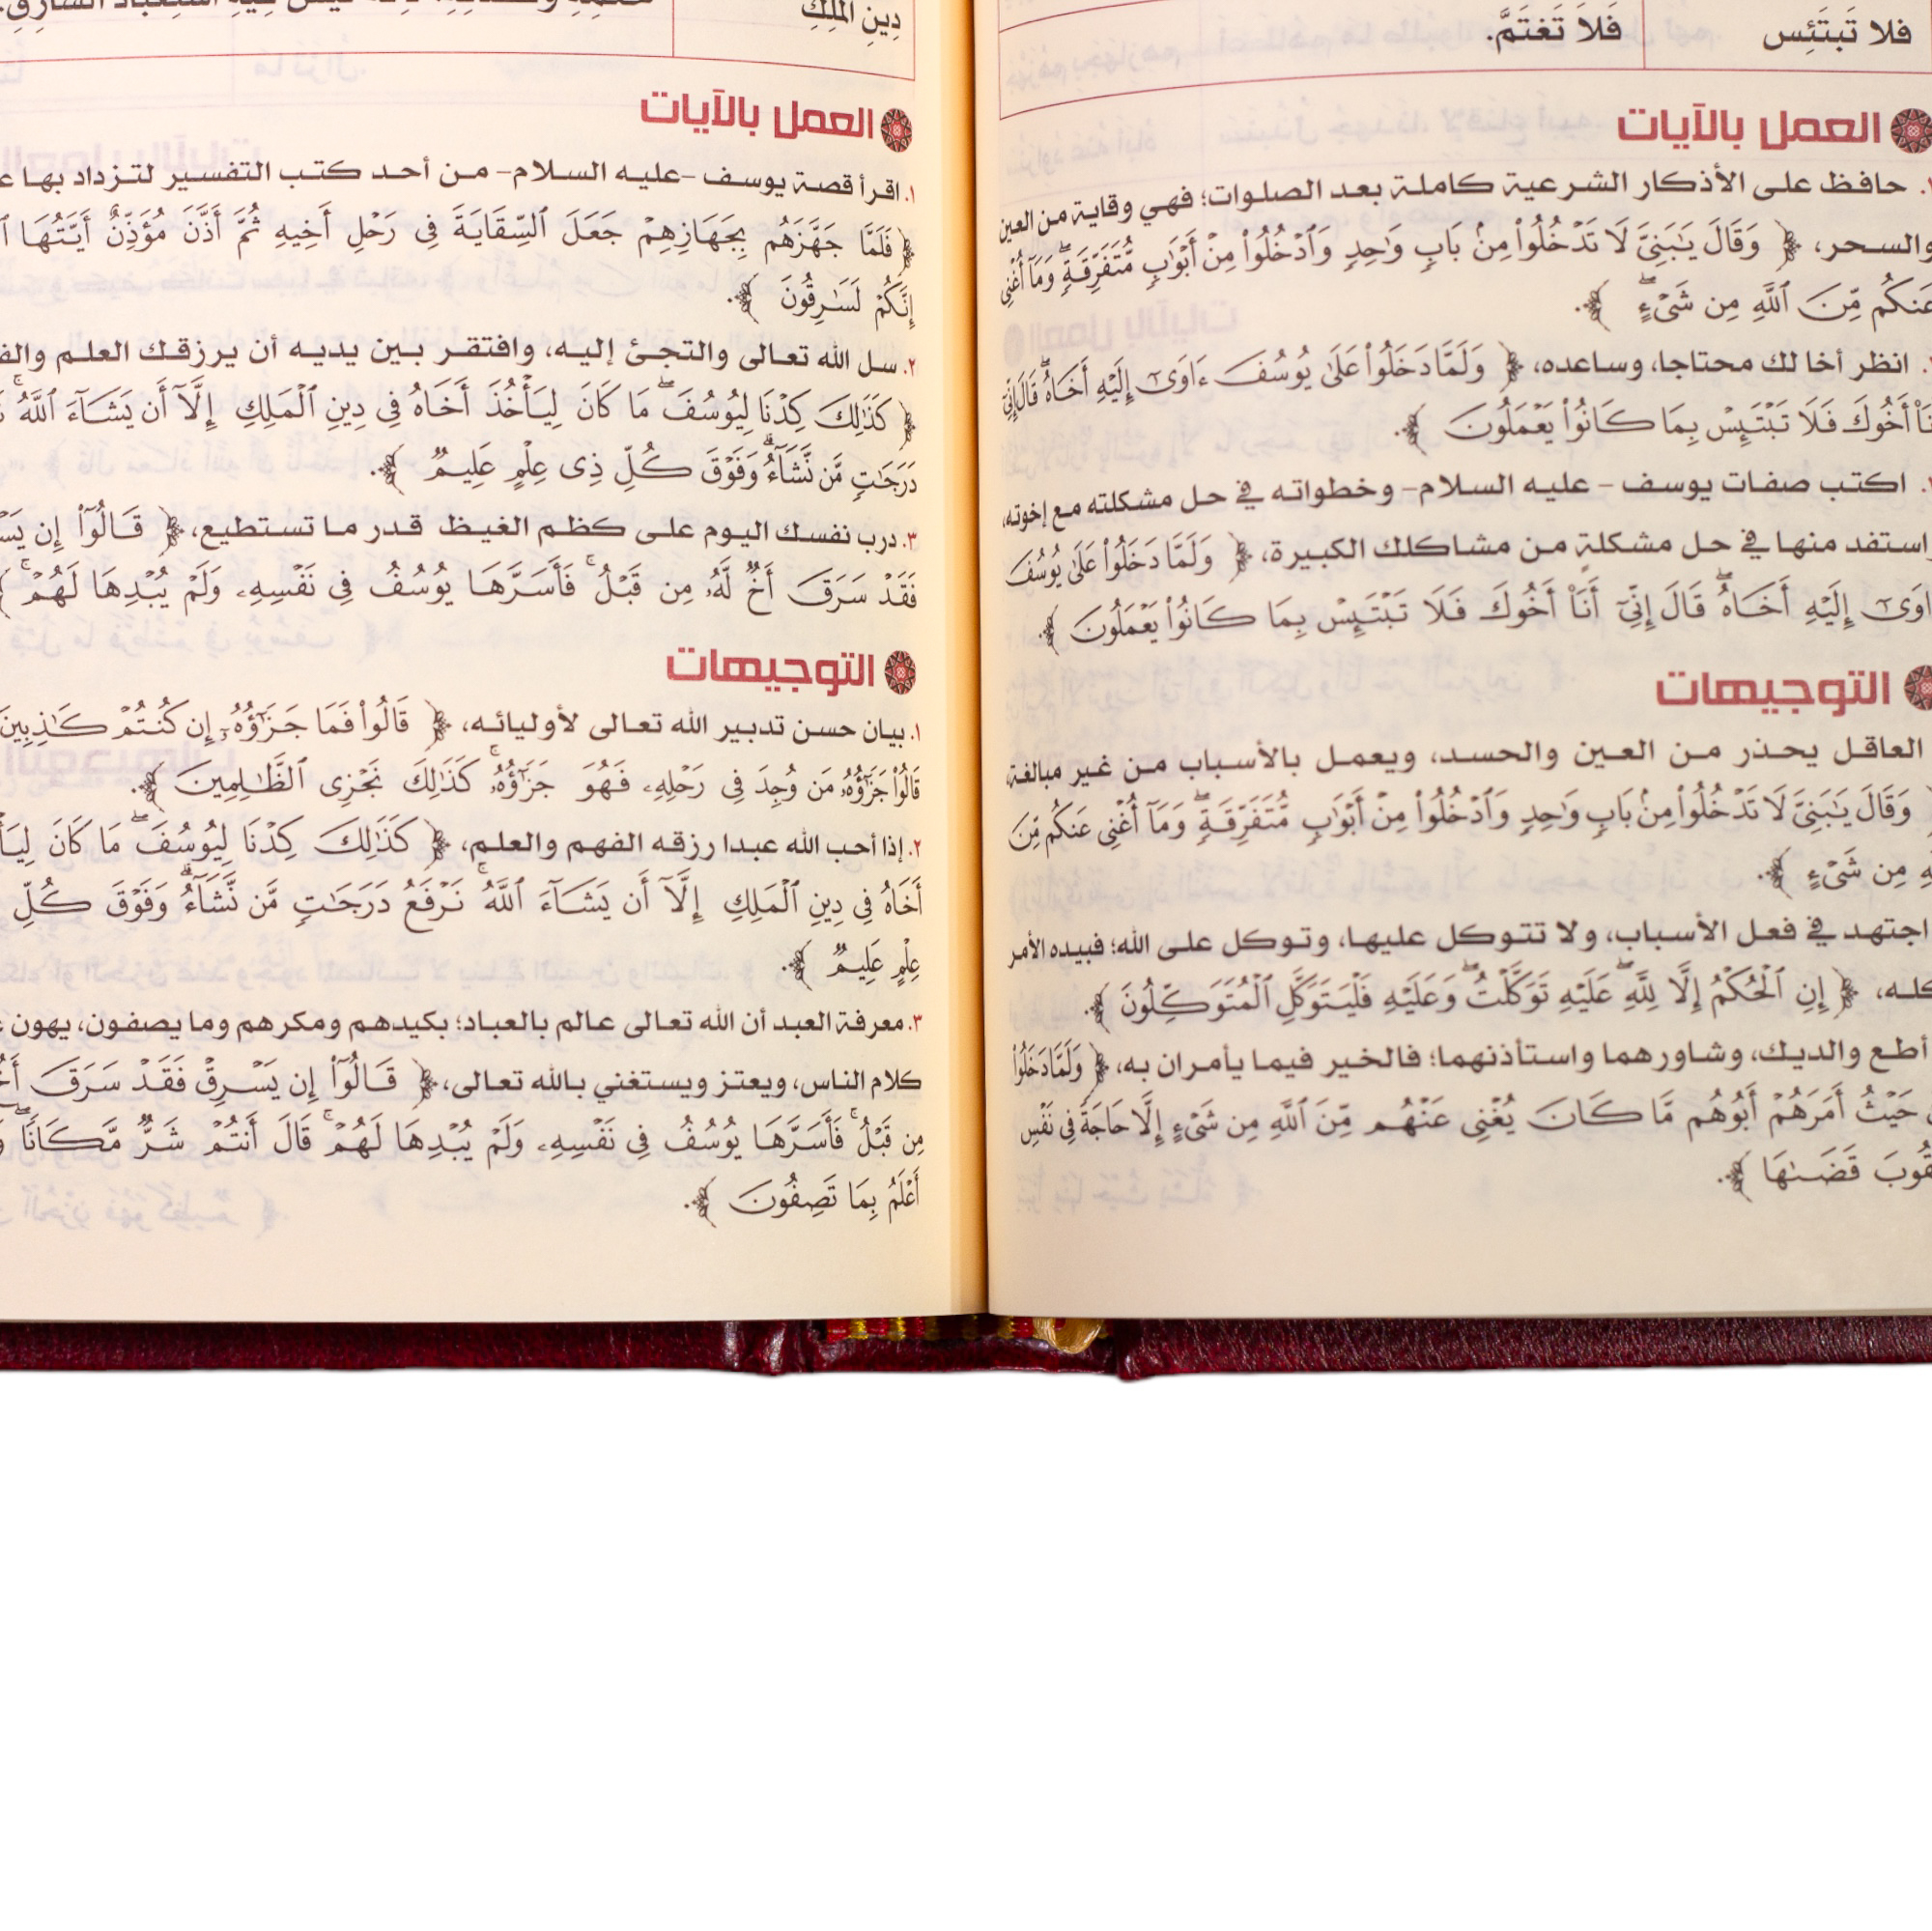 فلا تَبتَئِس فَلاَ تَغتَمَّ.
العمل بالآيات
حافظ على الأذكار الشرعية كاملة بعد الصلوات؛ فهي وقاية من العين
والسحر، ﴿ وَقَالَ يَٰبَنِىَّ لَا تَدْخُلُوا۟ مِنۢ بَابٍ وَٰحِدٍ وَٱدْخُلُوا۟ مِنْ أَبْوَٰبٍ مُّتَفَرِّقَةٍ ۖ وَمَآ أُغْنِى
عَنكُم مِّنَ ٱللَّهِ مِن شَىْءٍ ۖ ﴾.
انظر أخا لك محتاجا، وساعده، ﴿ وَلَمَّا دَخَلُوا۟ عَلَىٰ يُوسُفَ ءَاوَىٰٓ إِلَيْهِ أَخَاهُ ۖ قَالَ إِنِّىٓ
أَنَا۠ أَخُوكَ فَلَا تَبْتَئِسْ بِمَا كَانُوا۟ يَعْمَلُونَ ﴾.
اكتب صفات يوسف – عليه السلام– وخطواته في حل مشكلته مع إخوته،
استفد منها في حل مشكلةٍ من مشاكلك الكبيرة، ﴿ وَلَمَّا دَخَلُوا۟ عَلَىٰ يُوسُفَ
ءَاوَىٰٓ إِلَيْهِ أَخَاهُ ۖ قَالَ إِنِّىٓ أَنَا۠ أَخُوكَ فَلَا تَبْتَئِسْ بِمَا كَانُوا۟ يَعْمَلُونَ ﴾.
التوجيهات
العاقل يحذر من العين والحسد، ويعمل بالأسباب من غير مبالغة
وَقَالَ يَٰبَنِىَّ لَا تَدْخُلُوا۟ مِنۢ بَابٍ وَٰحِدٍ وَٱدْخُلُوا۟ مِنْ أَبْوَٰبٍ مُّتَفَرِّقَةٍ ۖ وَمَآ أُغْنِى عَنكُم مِّنَ
مِن شَىْءٍ ﴾.
اجتهد في فعل الأسباب، ولا تتوكل عليها، وتوكل على الله؛ فبيده الأمر
كله، ﴿ إِنِ ٱلْحُكْمُ إِلَّا لِلَّهِ ۖ عَلَيْهِ تَوَكَّلْتُ ۖ وَعَلَيْهِ فَلْيَتَوَكَّلِ ٱلْمُتَوَكِّلُونَ ﴾.
أطع والديك، وشاورهما واستأذنهما؛ فالخير فيما يأمران به، ﴿ وَلَمَّا دَخَلُوا۟
حَيْثُ أَمَرَهُمْ أَبُوهُم مَّا كَانَ يُغْنِى عَنْهُم مِّنَ ٱللَّهِ مِن شَىْءٍ إِلَّا حَاجَةً فِى نَفْسِ
قَضَىٰهَا ﴾.
دِينِ الْمَلِكِ
العمل بالآيات
١. اقرأ قصة يوسف –عليه السلام– من أحد كتب التفسير لتزداد بها
﴿ فَلَمَّا جَهَّزَهُم بِجَهَازِهِمْ جَعَلَ ٱلسِّقَايَةَ فِى رَحْلِ أَخِيهِ ثُمَّ أَذَّنَ مُؤَذِّنٌ أَيَّتُهَا
إِنَّكُمْ لَسَٰرِقُونَ ﴾.
٢. سل الله تعالى والتجئ إليه، وافتقر بين يديه أن يرزقك العلم
﴿ كَذَٰلِكَ كِدْنَا لِيُوسُفَ ۖ مَا كَانَ لِيَأْخُذَ أَخَاهُ فِى دِينِ ٱلْمَلِكِ إِلَّآ أَن يَشَآءَ ٱللَّهُ ۚ
دَرَجَٰتٍ مَّن نَّشَآءُ ۗ وَفَوْقَ كُلِّ ذِى عِلْمٍ عَلِيمٌ ﴾.
٣. درب نفسك اليوم على كظم الغيظ قدر ما تستطيع، ﴿ قَالُوٓا۟ إِن
فَقَدْ سَرَقَ أَخٌ لَّهُۥ مِن قَبْلُ ۚ فَأَسَرَّهَا يُوسُفُ فِى نَفْسِهِۦ وَلَمْ يُبْدِهَا لَهُمْ ۚ ﴾
التوجيهات
١. بيان حسن تدبير الله تعالى لأوليائه، ﴿ قَالُوا۟ فَمَا جَزَٰٓؤُهُۥٓ إِن كُنتُمْ كَٰذِبِينَ
قَالُوا۟ جَزَٰٓؤُهُۥ مَن وُجِدَ فِى رَحْلِهِۦ فَهُوَ جَزَٰٓؤُهُۥ ۚ كَذَٰلِكَ نَجْزِى ٱلظَّٰلِمِينَ ﴾.
٢. إذا أحب الله عبدا رزقه الفهم والعلم، ﴿ كَذَٰلِكَ كِدْنَا لِيُوسُفَ ۖ مَا كَانَ
أَخَاهُ فِى دِينِ ٱلْمَلِكِ إِلَّآ أَن يَشَآءَ ٱللَّهُ ۚ نَرْفَعُ دَرَجَٰتٍ مَّن نَّشَآءُ ۗ وَفَوْقَ كُلِّ
عِلْمٍ عَلِيمٌ ﴾.
٣. معرفة العبد أن الله تعالى عالم بالعباد؛ بكيدهم ومكرهم وما يصفون، يهون
كلام الناس، ويعتز ويستغني بالله تعالى، ﴿ قَالُوٓا۟ إِن يَسْرِقْ فَقَدْ سَرَقَ
مِن قَبْلُ ۚ فَأَسَرَّهَا يُوسُفُ فِى نَفْسِهِۦ وَلَمْ يُبْدِهَا لَهُمْ ۚ قَالَ أَنتُمْ شَرٌّ مَّكَانًا ۖ
أَعْلَمُ بِمَا تَصِفُونَ ﴾.